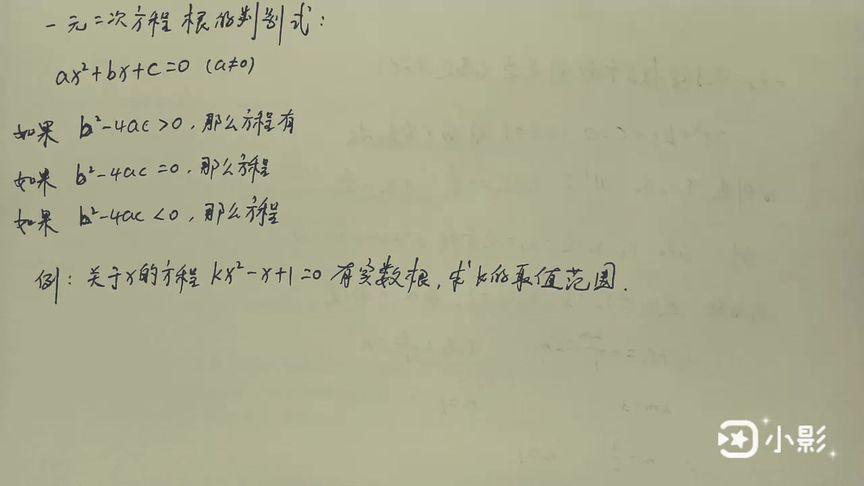 一元二次方程根的判别式：
ax²+bx+c=0 (a≠0)
如果 b²-4ac>0，那么方程有
如果 b²-4ac=0，那么方程
如果 b²-4ac<0，那么方程
例：关于x的方程 kx²-x+1=0 有实数根，求k的取值范围.
小影